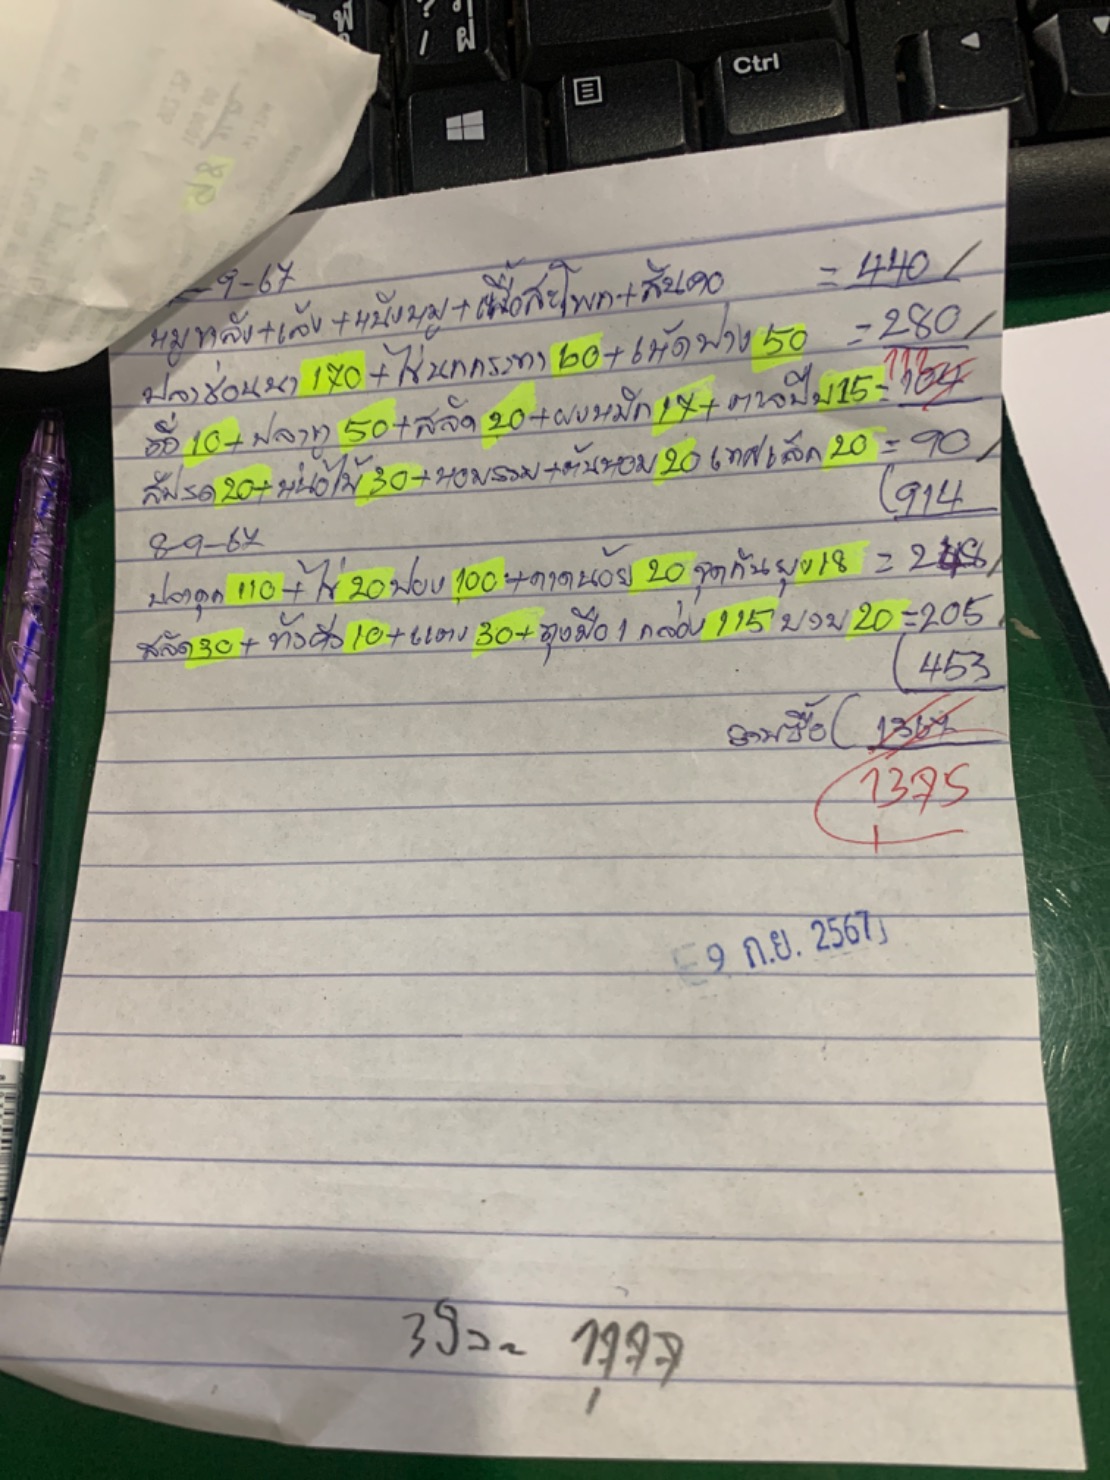 -9-67
หมูหลัง+เล้ง+หนังหมู+เนื้อสะโพก+สันคอ = 440/
ปลาช่อนนา 170+ไข่นกกระทา 60+เห็ดฟาง 50 = 280/
112
10+ปลาทู 50+สลัด 20+ผงหมึก 17+ 15=104
สัปรด 20+หน่อไม้ 30+หอมรวม+ต้นหอม 20 เทศเล็ก 20 = 90/
(914
8-9-67
ปลาดุก 110+ไข่ 20 ฟอง 100+ถาดน้อย 20 จุดกันยุง 18 = 248/
สลัด 30+ 10+แตง 30+ถุงมือ 1 กล่อง 115 20=205
(453
รวมซื้อ (1367
1375
9 ก.ย. 2567
Ctrl